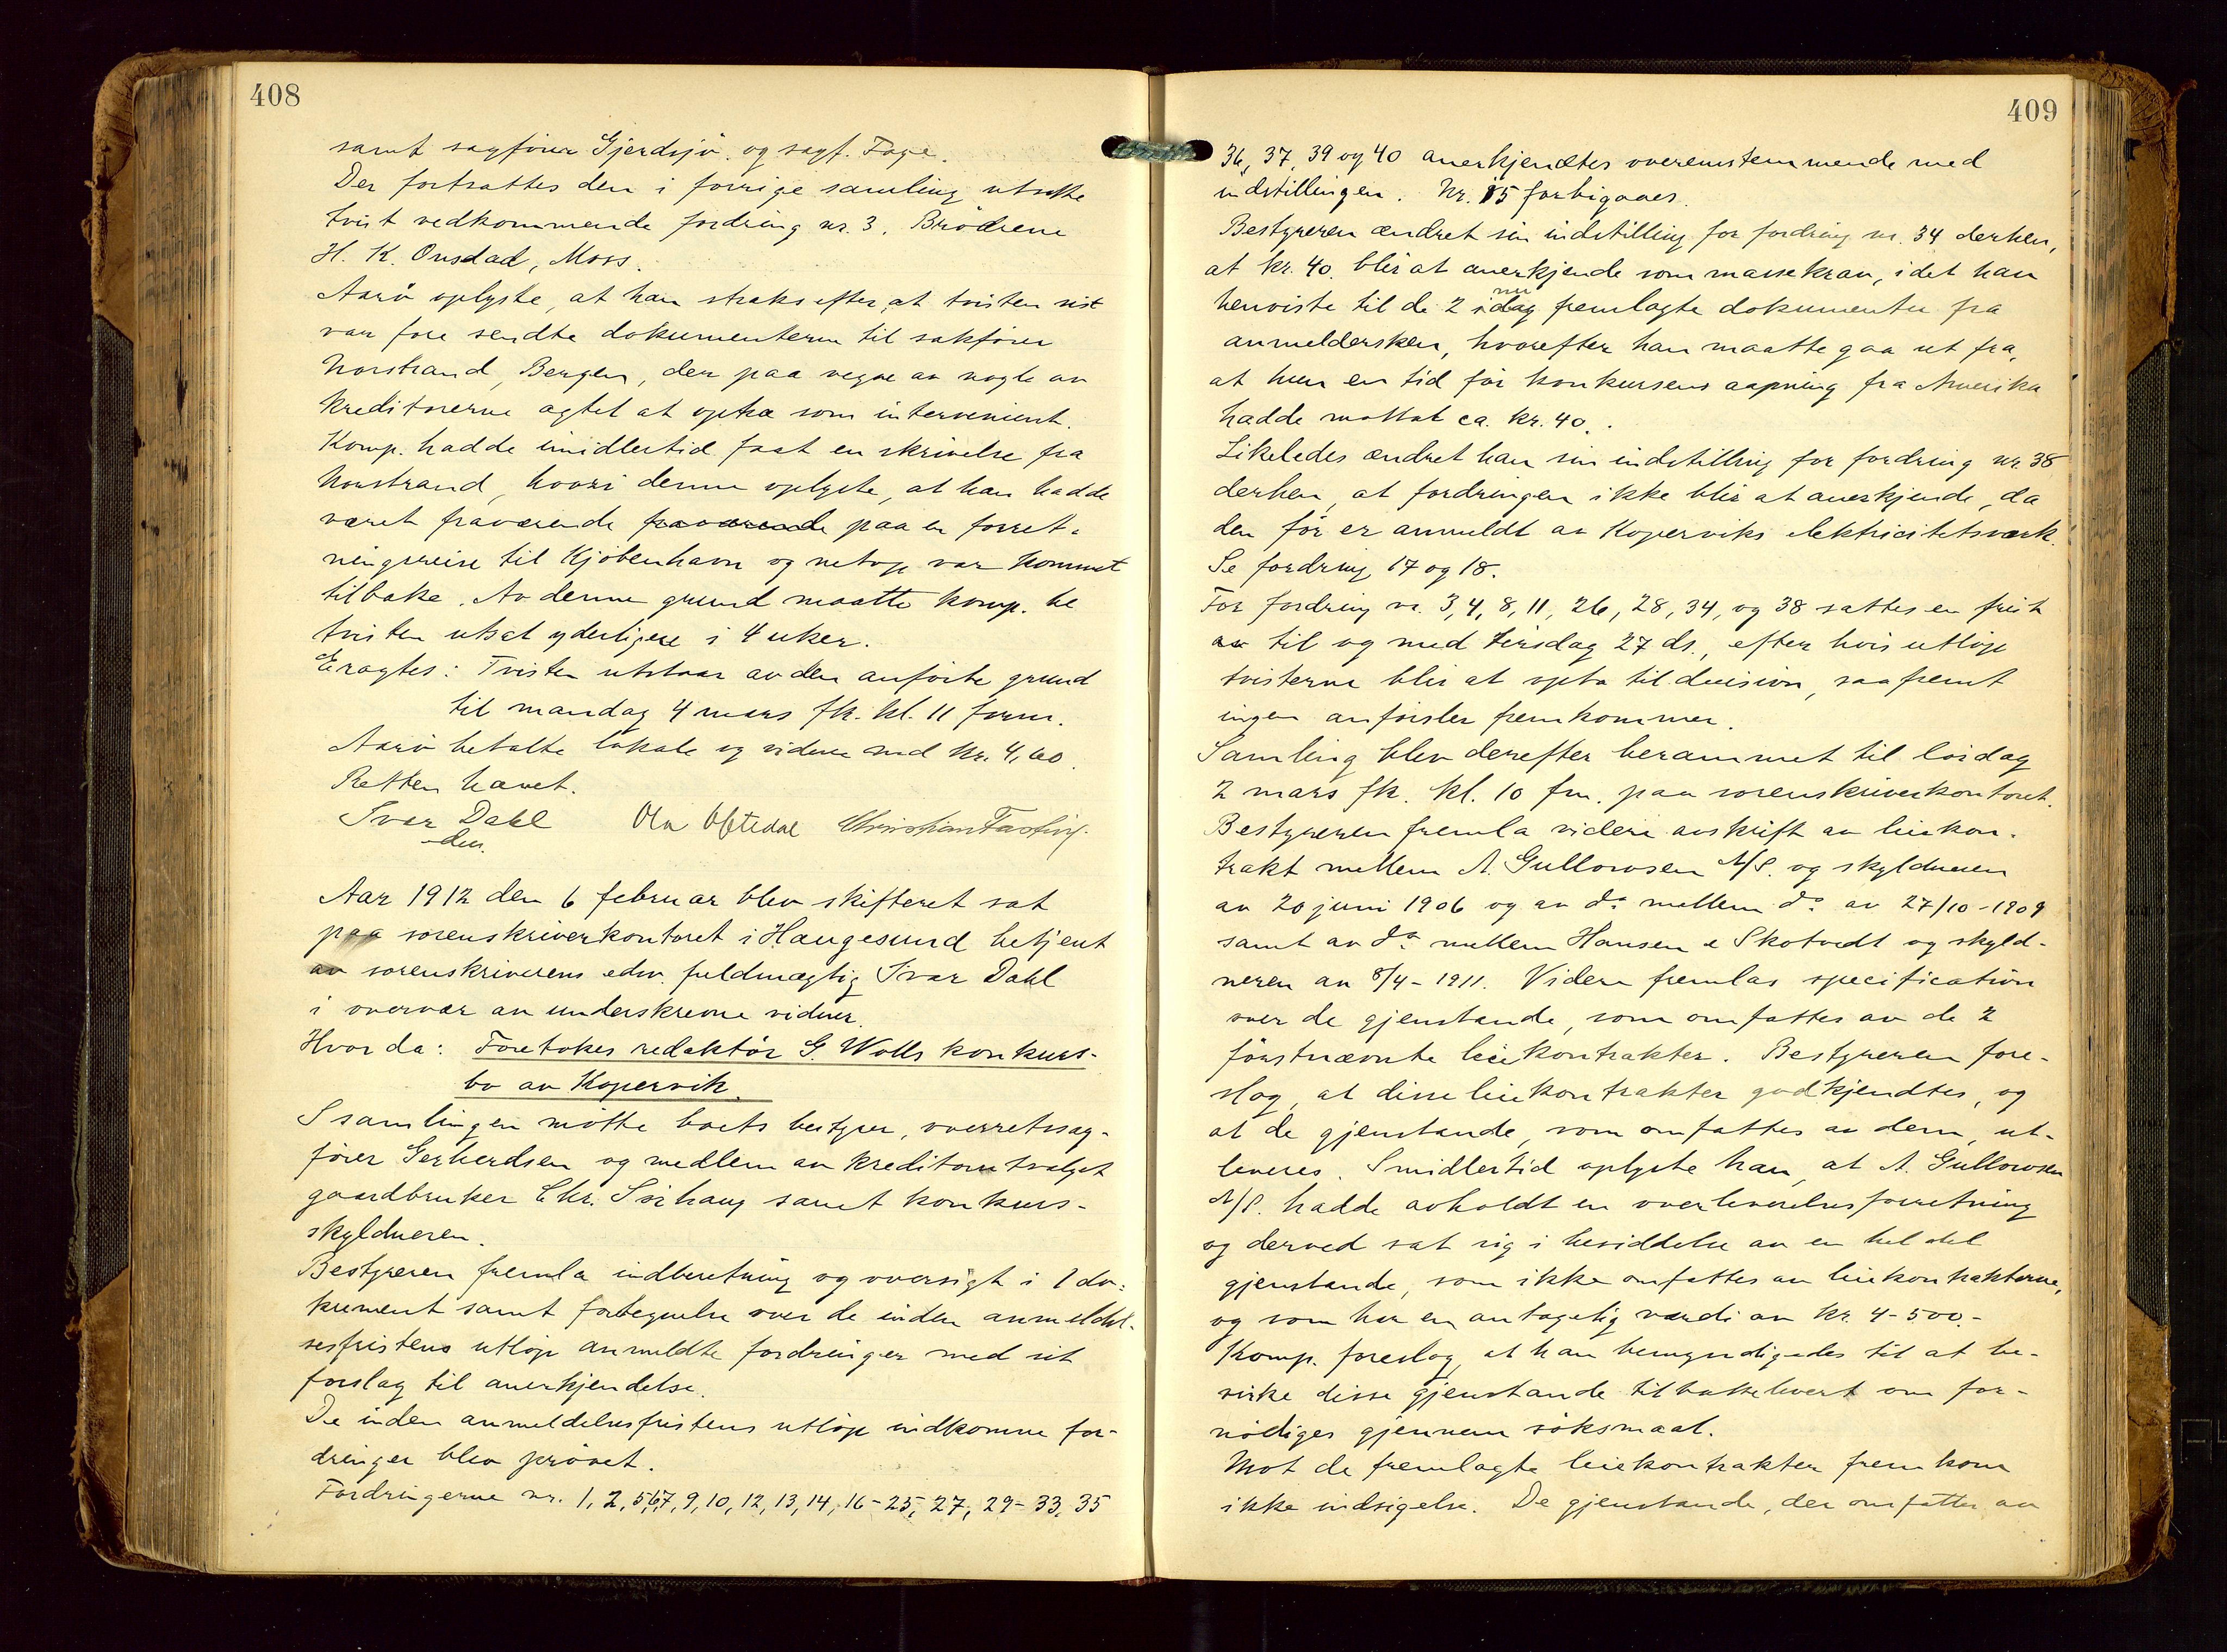 408
samt sagfører Gjerdsjø. og sagf. Foge.
Der fortsattes den i forrige samling utsatte
tvist vedkommende fordring nr. 3. Brødrene
H. K. Onsdad, Moss.
Aarø oplyste, at han straks efter, at tvisten sist
var fore sendte dokumenterne til sakfører
Norstrand, Bergen, der paa vegne av nogle av
kreditorerne agtet at optræ som intervenient.
Komp. hadde imidlertid faat en skrivelse fra
Norstrand, hvori denne oplyste, at han hadde
været fraværende fraværende paa en forret-
ningsreise til Kjøbenhavn og netop var kommet
tilbake. Av denne grund maatte komp. be
tvisten utsat yderligere i 4 uker.
Eragtes: Tvisten utstaar av den anførte grund
til mandag 4 mars fk. kl. 11 form.
Aarø betalte lokale og vidner med kr. 4,60.
Retten hævet.
Ivar Dahl Ola Oftedal Christian Fasting.
edsv.
Aar 1912 den 6 februar blev skifteret sat
paa sorenskriverkontoret i Haugesund betjent
av sorenskriverens edsv. fuldmægtig Ivar Dahl
i overvær av underskrevne vidner.
Hvor da: Foretokes redaktør G. Wolls konkurs-
bo av Kopervik.
I samlingen møtte boets bestyrer, overretssag-
fører Gerherdsen og medlem av kreditorutvalget
gaardbruker Chr. Sørhaug samt konkurs-
skyldneren.
Bestyreren fremla indberetning og oversigt i 1 do-
kument samt fortegnelse over de inden anmeldel-
sesfristens utløp anmeldte fordringer med sit
forslag til anerkjendelse.
De inden anmeldelsesfristens utløp indkomne for-
dringer blev prøvet.
Fordringerne nr. 1, 2, 5, 6, 7, 9, 10, 12, 13, 14, 16-25, 27, 29-33, 35
409
36, 37, 39 og 40 anerkjendtes overensstemmende med
indstillingen. Nr. 15 forbigaaes.
Bestyreren ændret sin indstilling for fordring nr. 34 derhen,
at kr. 40. blir at anerkjende som massekrav, idet han
nu
henviste til de 2 idag fremlagte dokumenter fra
anmeldersken, hvorefter han maatte gaa ut fra,
at hun en tid før konkursens aapning fra Amerika
hadde mottat ca. kr. 40.
Likeledes ændret han sin indstilling for fordring nr. 38
derhen, at fordringen ikke blir at anerkjende, da
den før er anmeldt av Koperviks elektricitetsværk.
Se fordring 17 og 18.
For fordring nr. 3, 4, 8, 11, 26, 28, 34, og 38 sattes en frist
av til og med tirsdag 27 ds., efter hvis utløp
tvisterne blir at opta til decision, saafremt
ingen anførsler fremkommer.
Samling blev derefter berammet til lørdag
2 mars fk. kl. 10 fm. paa sorenskriverkontoret.
Bestyreren fremla videre avskrift av leiekon-
trakt mellem A. Gullowsen A/S. og skyldneren
av 20 juni 1906 og av do mellem do av 27/10-1909
samt av do mellem Hansen & Skotvedt og skyld-
neren av 8/4-1911. Videre fremlas specification
over de gjenstande, som omfattes av de 2
førstnævnte leiekontrakter. Bestyreren fore-
slog, at disse leiekontrakter godkjendtes, og
at de gjenstande, som omfattes av dem, ut-
leveres. Imidlertid oplyste han, at A. Gullowsen
A/S. hadde avholdt en overleverelsesforretning
og derved sat sig i besiddelse av en hel del
gjenstande, som ikke omfattes av leiekontrakterne,
og som har en antagelig værdi av kr. 4-500.-
Komp. foreslog, at han bemyndigedes til at be-
virke disse gjenstande tilbakelevert om for-
nødiges gjennem søksmaal.
Mot de fremlagte leiekontrakter fremkom
ikke indsigelse. De gjenstande, der omfattes av